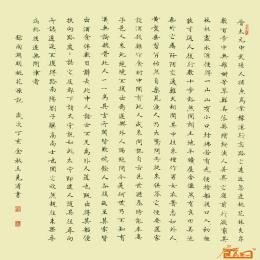 晉太元中武陵人捕魚為業緣溪行忘路之遠近忽逢桃花林夾岸
數百步中無雜樹芳草鮮美落英繽紛漁人甚異之復前行欲窮其
林林盡水源便得一山山有小口彷彿若有光便捨船從口入初
極狹纔通人復行數十步豁然開朗土地平曠屋舍儼然有良田美
池桑竹之屬阡陌交通雞犬相聞其中往來種作男女衣著悉如外人
黃髮垂髫並怡然自樂見漁人乃大驚問所從來具答之便要還家
設酒殺雞作食村中聞有此人咸來問訊自云先世避秦時亂率妻
子邑人來此絕境不復出焉遂與外人間隔問今是何世乃不知有
漢無論魏晉此人一一為具言所聞皆歎惋餘人各復延至其家皆
出酒食停數日辭去此中人語云不足為外人道也既出得其船便
扶向路處處誌之及郡下詣太守說如此太守即遣人隨其往尋向
所誌遂迷不復得路南陽劉子驥高尚士也聞之欣然規往未果尋
病終後遂無問津者
陶淵明桃花源記 歲次丁亥金秋